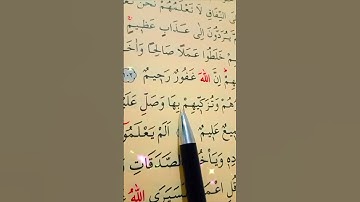 عَلَى النِّفَاقِ لَا تَعْلَمُهُمْ نَحْنُ
يُرَدُّونَ اِلٰى عَذَابٍ عَظِيمٍ
خَلَطُوا عَمَلًا صَالِحًا
اِنَّ اللّٰهَ غَفُورٌ رَحِيمٌ ﴿١٠٢﴾
وَتُزَكِّيهِمْ بِهَا وَصَلِّ عَلَيْ
عَلِيمٌ اَلَمْ يَعْلَمُوا
وَيَأْخُذُ الصَّدَقَاتِ
فَسَيَرَى اللّٰهُ